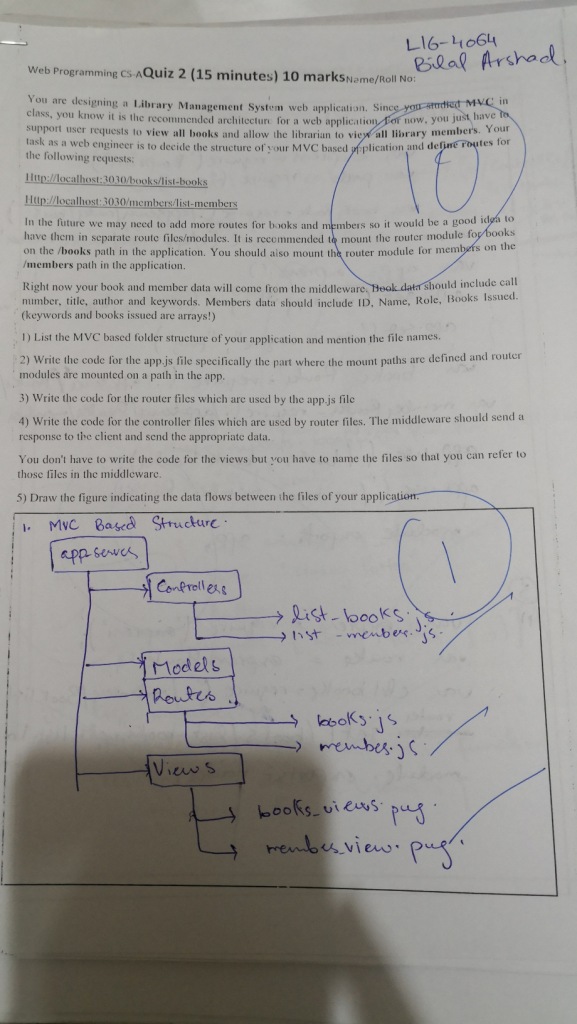 L16-4064
Bilal Arshad.
Web Programming CS-A Quiz 2 (15 minutes) 10 marks Name/Roll No:
You are designing a Library Management System web application. Since you studied MVC in
class, you know it is the recommended architecture for a web application. For now, you just have to
support user requests to view all books and allow the librarian to view all library members. Your
task as a web engineer is to decide the structure of your MVC based application and define routes for
the following requests:
10
Http://localhost:3030/books/list-books
Http://localhost:3030/members/list-members
In the future we may need to add more routes for books and members so it would be a good idea to
have them in separate route files/modules. It is recommended to mount the router module for books
on the /books path in the application. You should also mount the router module for members on the
/members path in the application.
Right now your book and member data will come from the middleware. Book data should include call
number, title, author and keywords. Members data should include ID, Name, Role, Books Issued.
(keywords and books issued are arrays!)
1) List the MVC based folder structure of your application and mention the file names.
2) Write the code for the app.js file specifically the part where the mount paths are defined and router
modules are mounted on a path in the app.
3) Write the code for the router files which are used by the app.js file
4) Write the code for the controller files which are used by router files. The middleware should send a
response to the client and send the appropriate data.
You don't have to write the code for the views but you have to name the files so that you can refer to
those files in the middleware.
5) Draw the figure indicating the data flows between the files of your application.
1. MVC Based Structure.
1
Controllers
list-books.js
list-member.js.
Models
Routes
books.js
member.js
Views
books_views.pug.
member_view.pug.